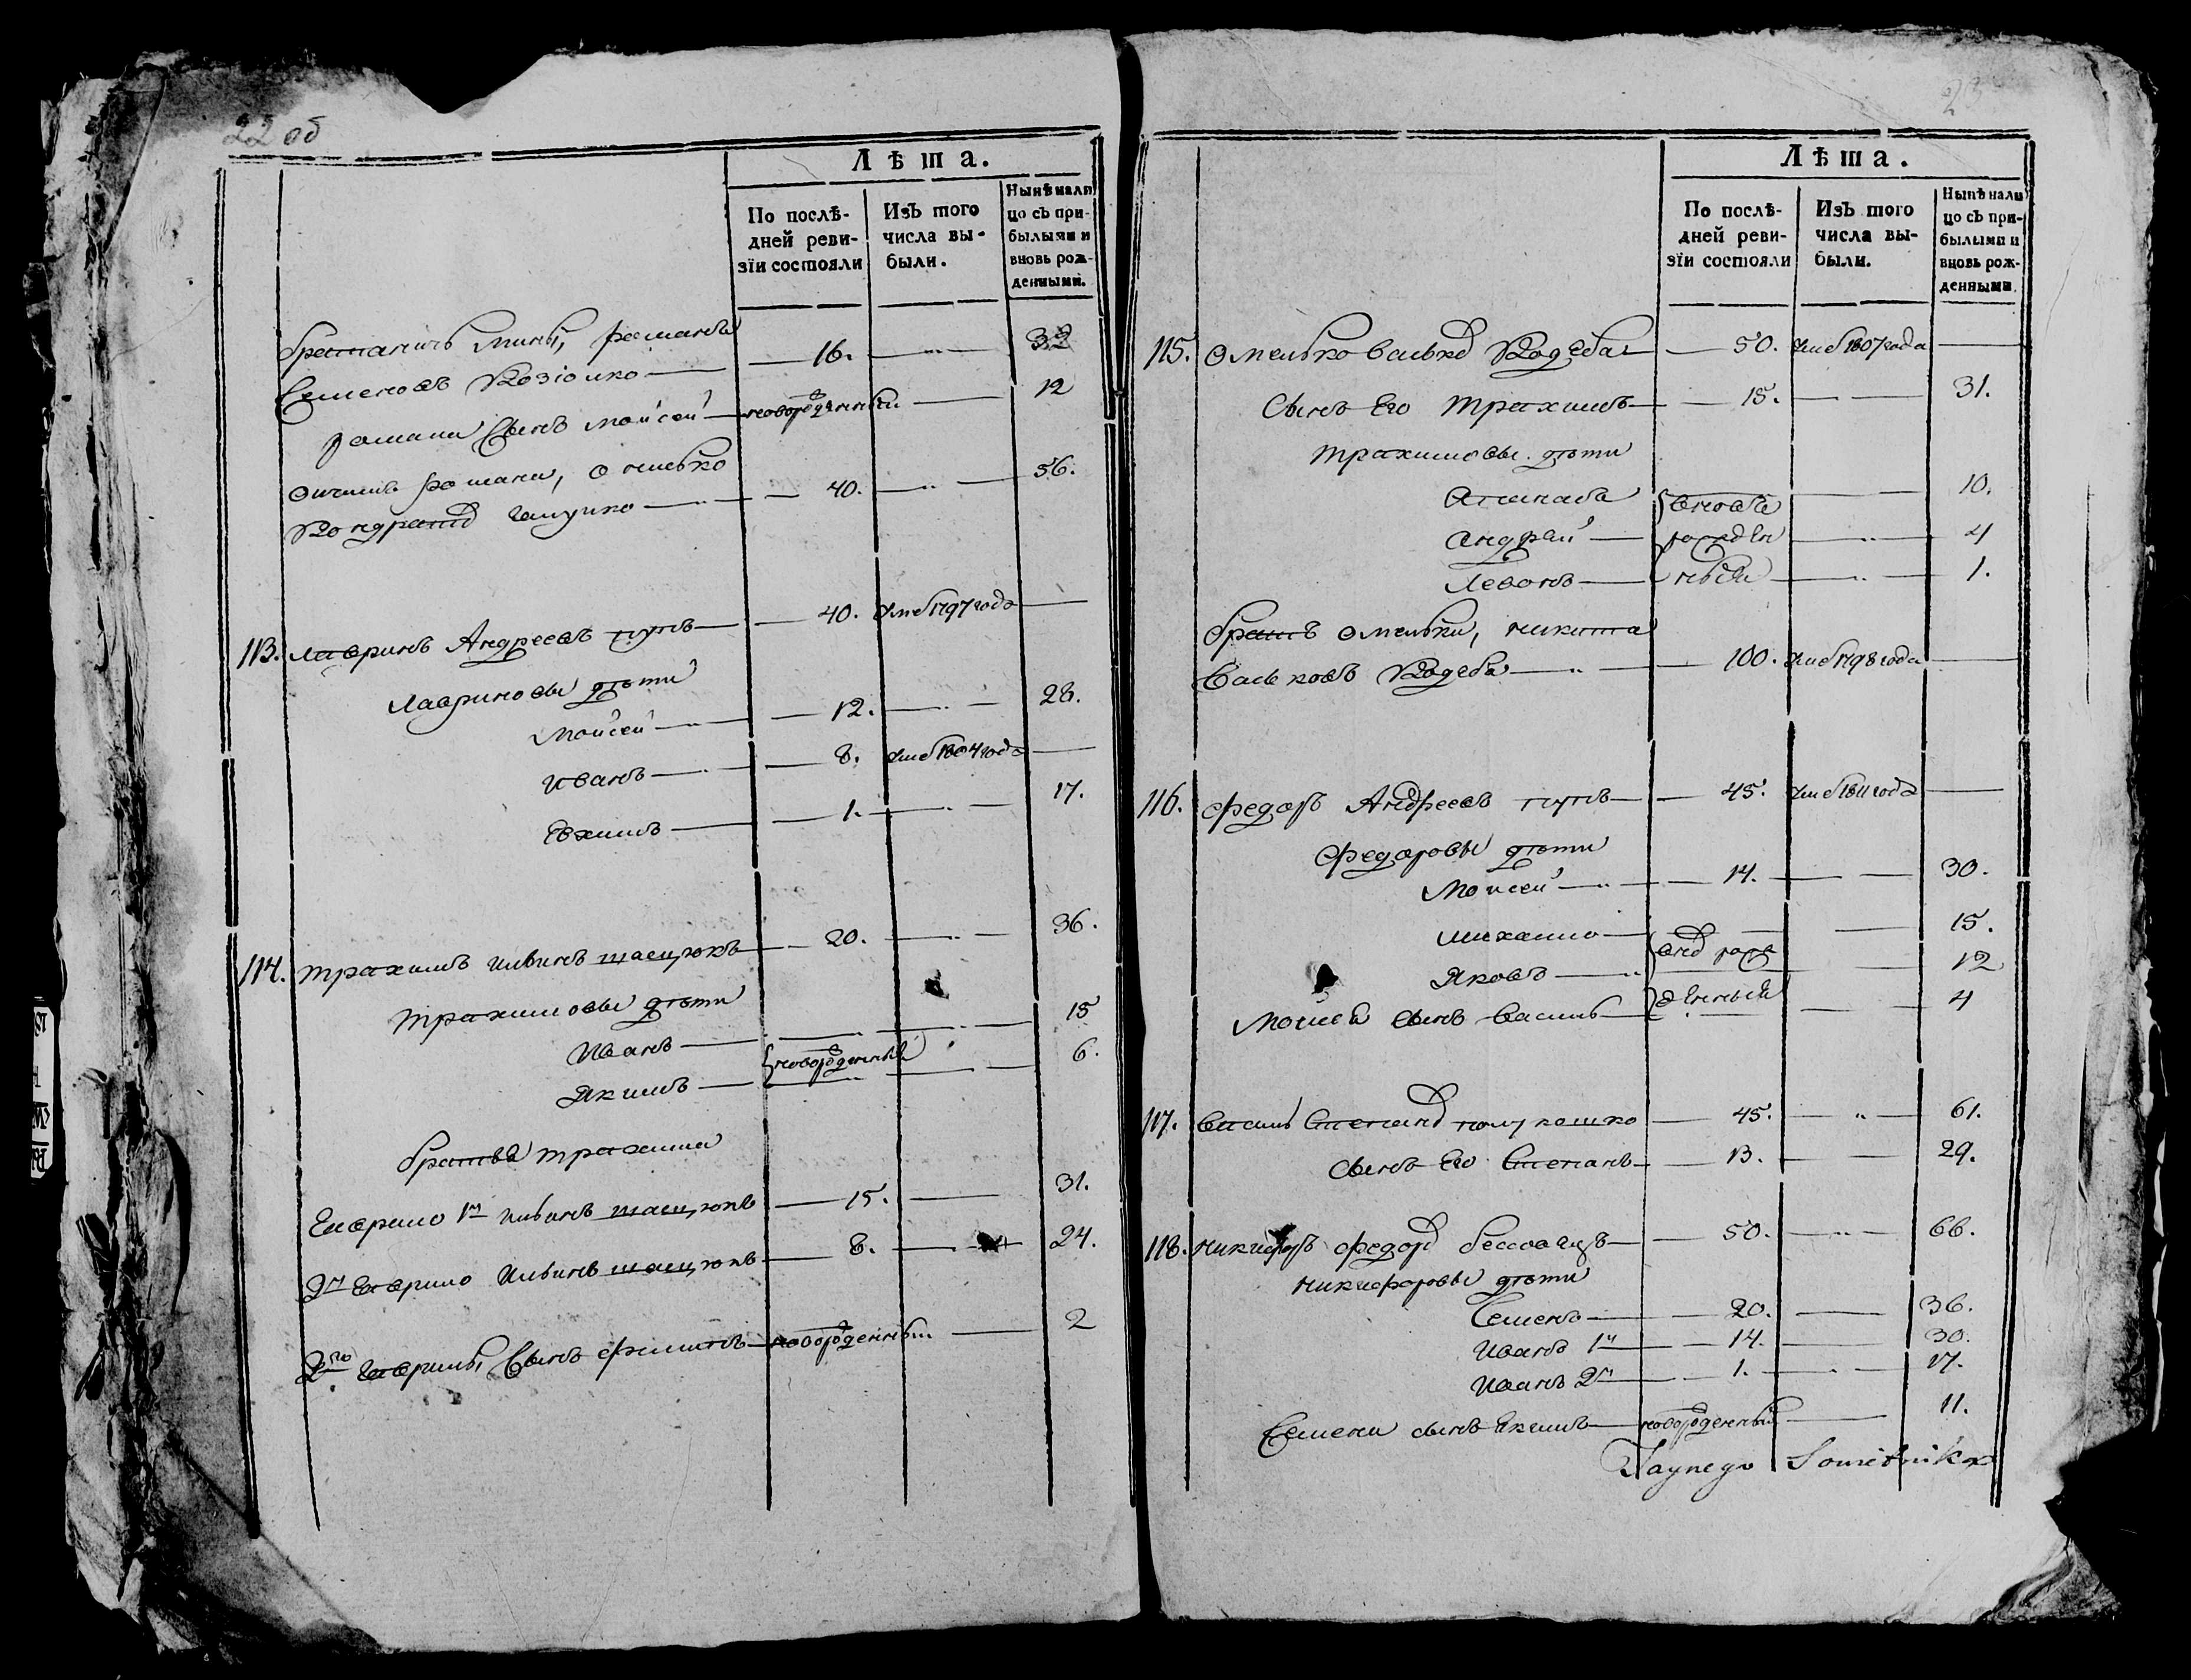 22 об
Лѣта.
По послѣдней ревизїи состояли
Изъ того числа выбыли.
Нынѣ налицо съ прибылыми и вновь рожденными.
братаничъ Мины, романъ
Семеновъ Козіолко — 16. — 32
романа Сынъ моисей — новорожденный — 12
отчимъ романа, омелько
Кондратов — 40. — 56.
113. лавринъ Андреевъ пупъ — 40. умеб 1797 года —
лавриновы дѣти
Моисей — 12. — 28.
Иванъ — 8. умеб 1804 года —
Евхимъ — 1. — 17.
114. трахимъ ильинъ — 20. — 36.
трахимовы дѣти
Иванъ — 15
Якимъ — новорожденные — 6.
братья трахима
Гаврило 1й ильинъ — 15. — 31.
2й Гаврило ильинъ — 8. — 24.
2го гаврилы Сынъ филипъ — новорожденный — 2
23
Лѣта.
По послѣдней ревизїи состояли
Изъ того числа выбыли.
Нынѣ налицо съ прибылыми и вновь рожденными.
115. омелько васьков Кодеба — 50. умеб 1807 года —
Сынъ Его трахимъ — 15. — 31.
трахимовы дѣти
Апанасъ — вновь — 10.
андрей — рожден — 4
Левонъ — ные — 1.
братъ омельки, никита
васьковъ Кодеба — 100. умеб 1798 года —
116. федоръ Андреевъ пупъ — 45. умеб 1811 года —
федоровы дѣти
Моисей — 14. — 30.
михаило — 15.
Яковъ — внов рож — 12
Моисея сынъ василь — денные — 4
117. василь Степанов полукошко — 45. — 61.
Сынъ Его Степанъ — 13. — 29.
118. никифоръ федоров — 50. — 66.
никифоровы дѣти
Семенъ — 20. — 36.
Иванъ 1й — 14. — 30.
Иванъ 2й — 1. — 17.
Семена сынъ Якимъ — новорожденный — 11.
Taynego Sowietnika